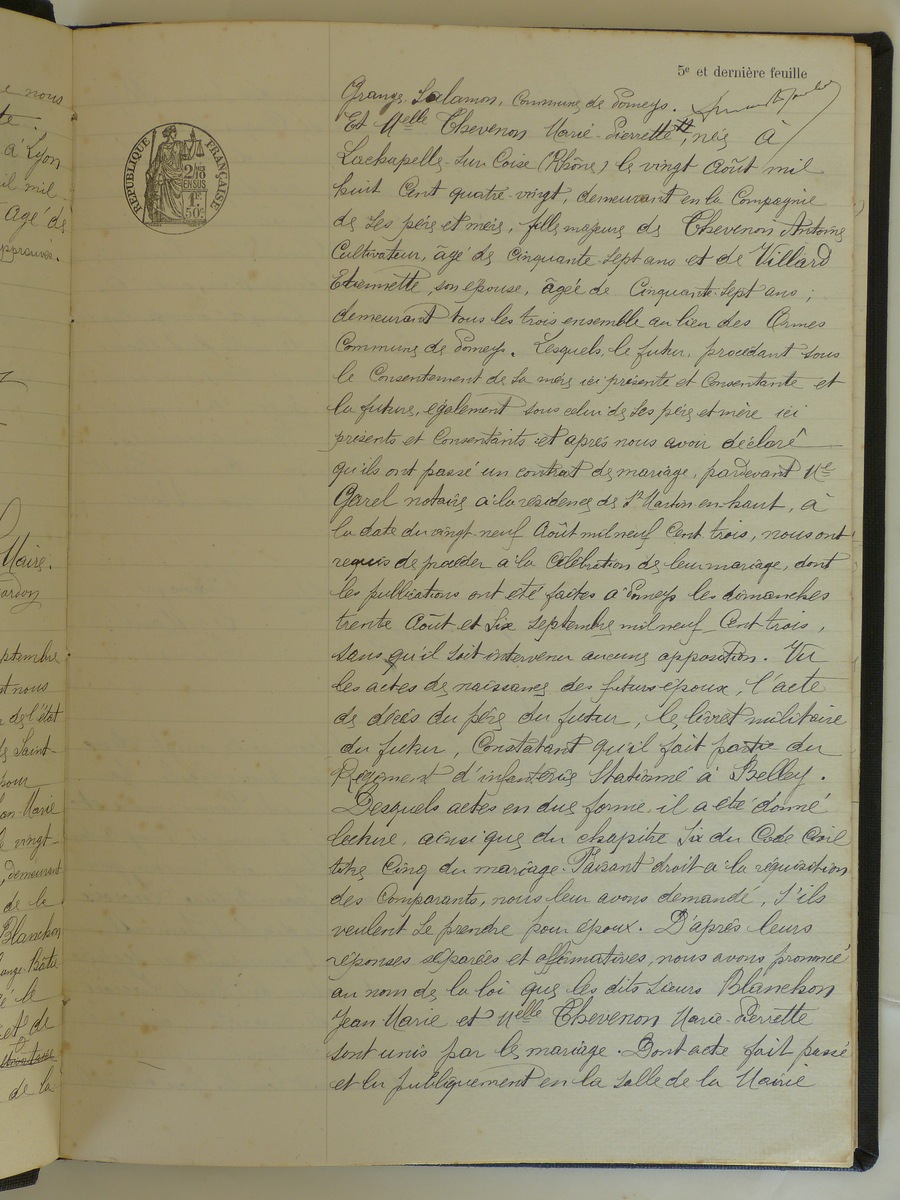 e nous
te.
à Lyon
il mil
agé de
approuvés.
Maire.
ptembre
st nous
de l'état
de Saint-
pour
an Marie
vingt-
demeurant
de la
Blanchon
ange-Bâtie
gé de
et de
de la
RÉPUBLIQUE FRANÇAISE
2/10
EN SUS
1F.
50c.
5e et dernière feuille
Grange-Salamon, Commune de Pomeys.
Et Melle Thevenon Marie-Pierrette #, née à
Lachapelle-sur-Coise (Rhône) le vingt Août mil
huit Cent quatre-vingt, demeurant en la Compagnie
de ses père et mère, fille majeure de Thevenon Antoine
Cultivateur, âgé de Cinquante-sept ans et de Villard
Etiennette, son épouse, âgée de Cinquante-sept ans ;
demeurant tous les trois ensemble au lieu des Ormes
Commune de Pomeys. Lesquels, le futur, procédant sous
le Consentement de sa mère ici présente et Consentante et
la future, également sous celui de ses père et mère ici
présents et Consentants et après nous avoir déclaré
qu'ils ont passé un contrat de mariage, pardevant Me
Garel notaire à la résidence de St Martin-en-haut, à
la date du vingt-neuf Août mil neuf Cent trois, nous ont
requis de procéder à la Célébration de leur mariage, dont
les publications ont été faites à Pomeys les dimanches
trente Août et Six Septembre mil neuf Cent trois,
sans qu'il soit intervenu aucune opposition. Vu
les actes de naissance des futurs époux, l'acte
de décès du père du futur, le livret militaire
du futur, Constatant qu'il fait partie du
Régiment d'infanterie Stationné à Belley.
Desquels actes en due forme, il a été donné
lecture, ainsi que du chapitre Six du Code Civil
titre Cinq du mariage. Faisant droit à la réquisition
des Comparants, nous leur avons demandé, s'ils
veulent se prendre pour époux. D'après leurs
réponses séparées et affirmatives, nous avons prononcé
au nom de la loi que les dits Sieurs Blanchon
Jean Marie et Melle Thevenon Marie-Pierrette
sont unis par le mariage. Dont acte fait passé
et lu publiquement en la salle de la Mairie